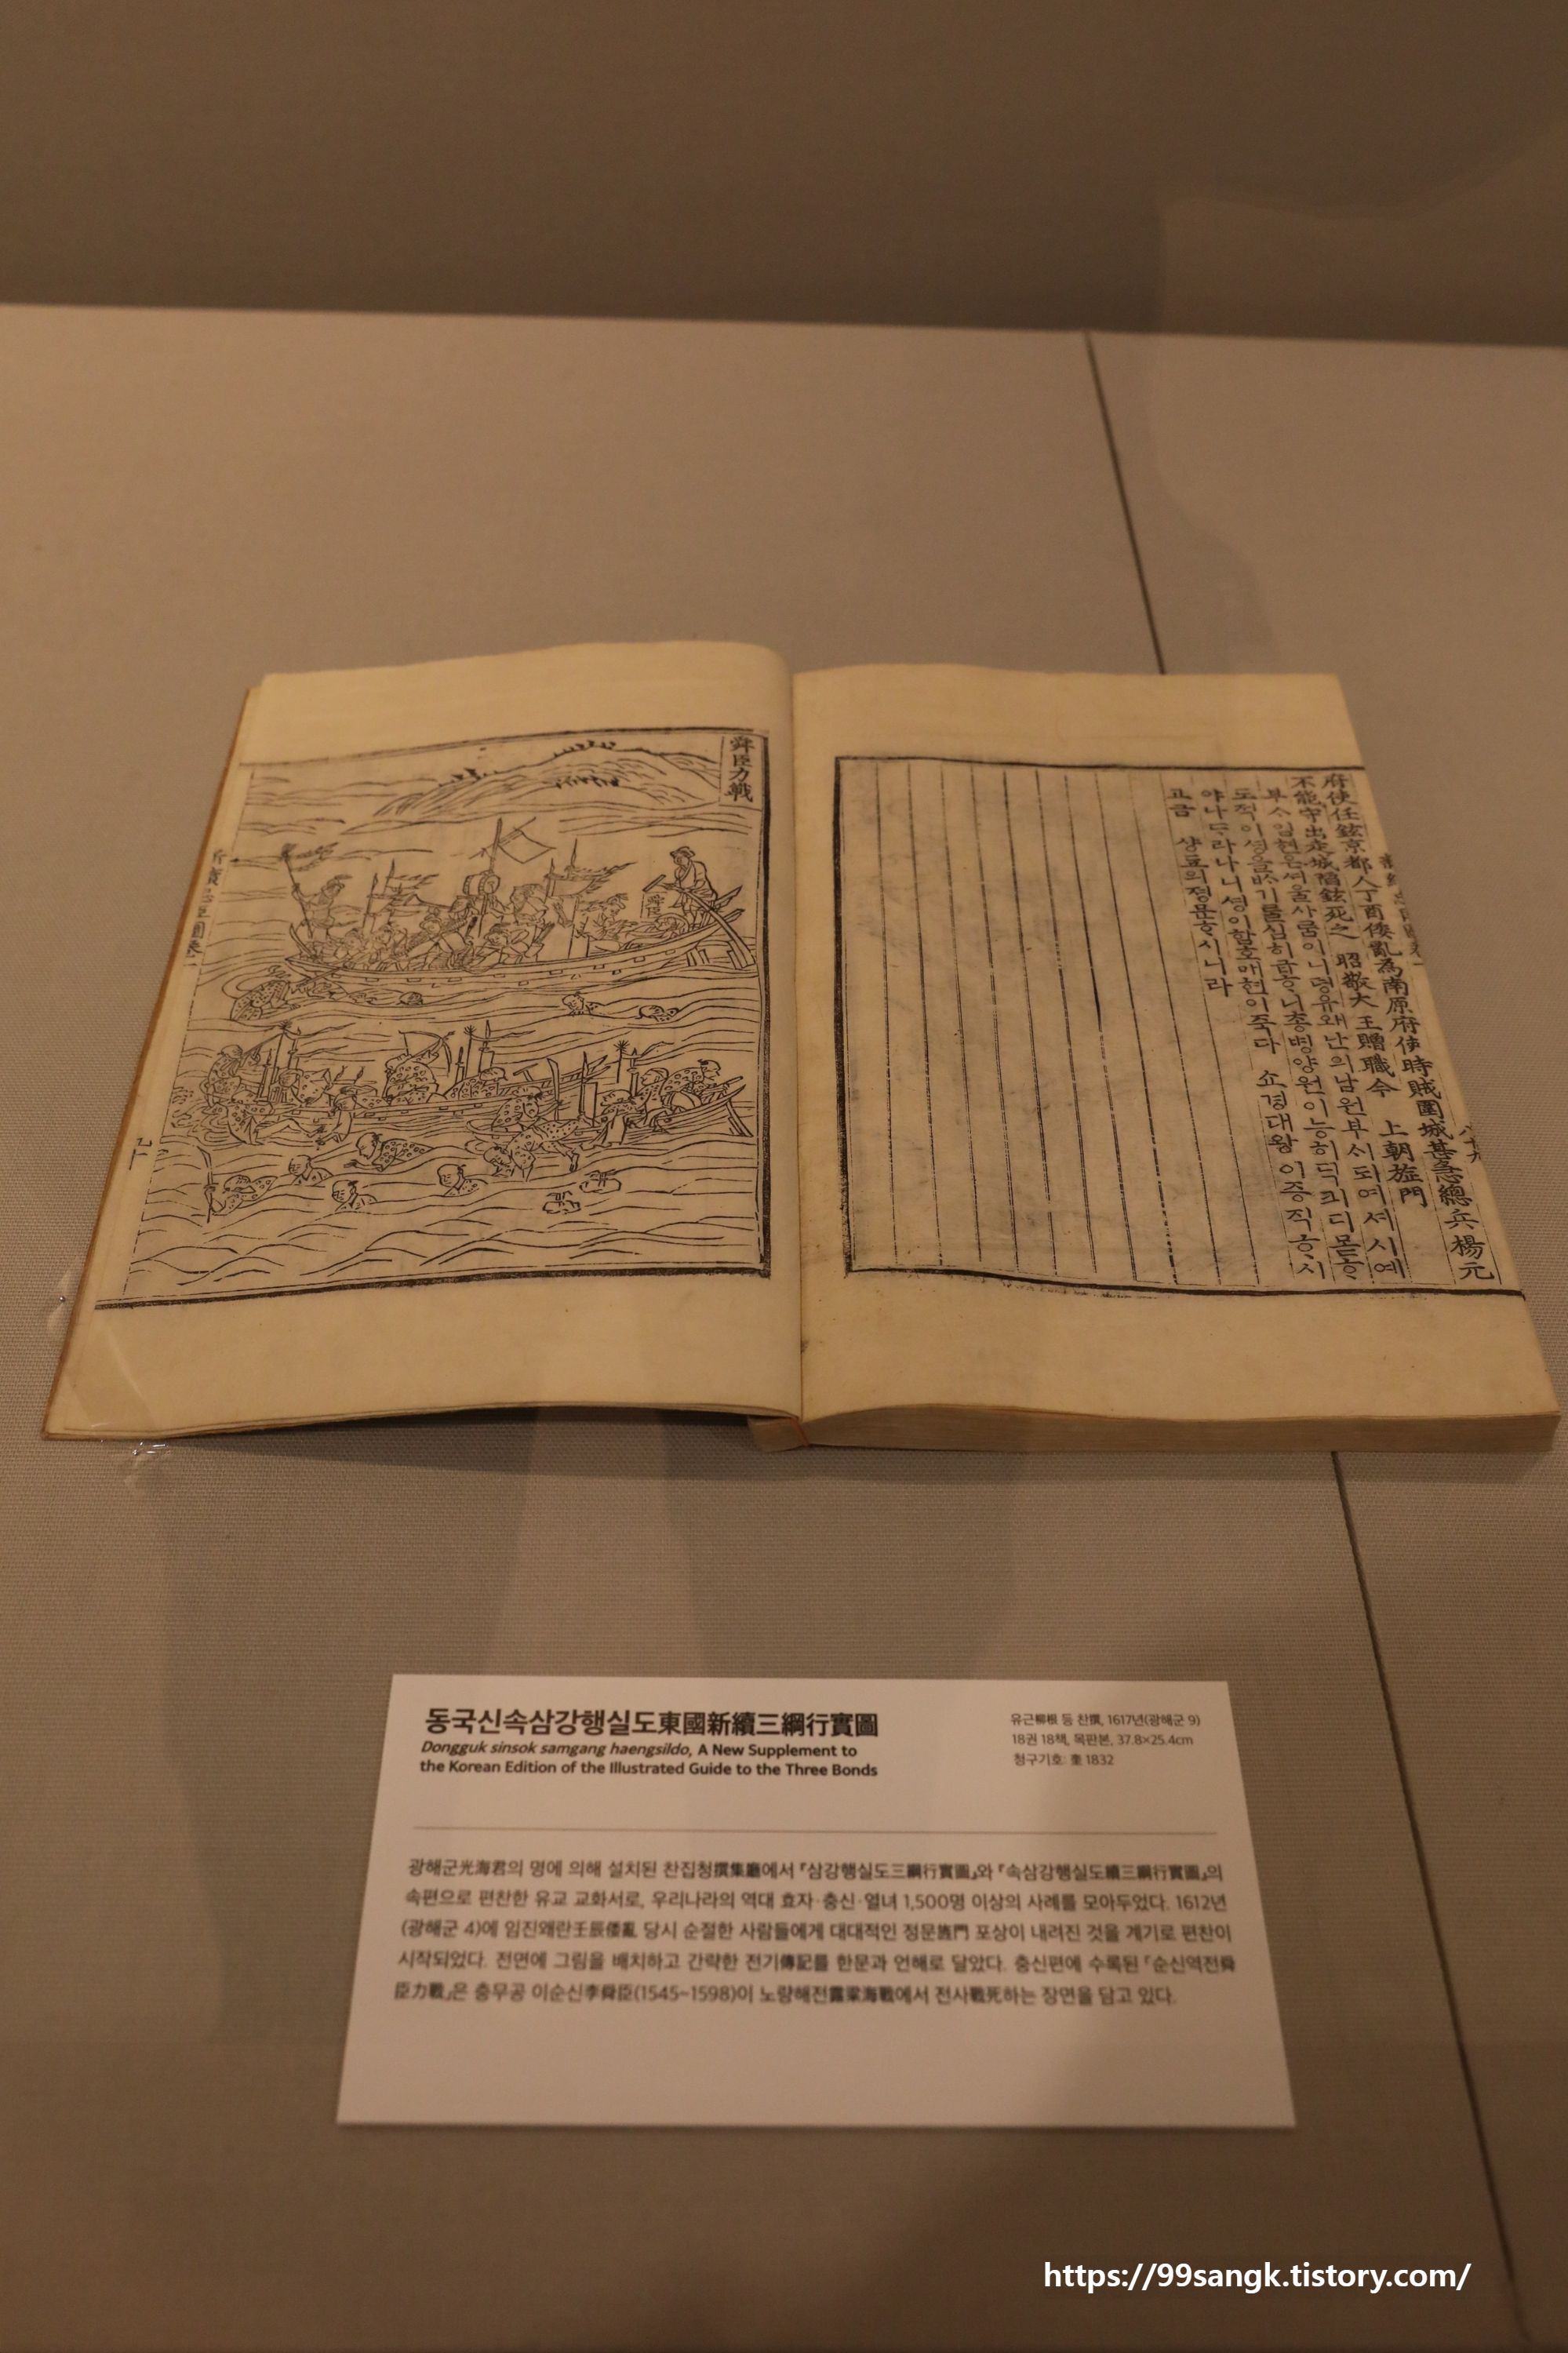 舜臣力戰
府使任鉉京都人丁酉倭亂為南原府使時賊圍城甚急總兵楊元
不能守出走城陷鉉死之 昭敬大王贈職今 上朝旌門
부ᄉᆞ임현은셔울사ᄅᆞᆷ이니뎡유왜난의남원부ᄉᆡ되여셔시예
도적이셩을ᄡᆞ기ᄅᆞᆯ심히급히ᄒᆞ니총병양원이능히딕킈디몯ᄒᆞ
야나ᄃᆞ라나니셩이함호매현이죽다 쇼경대왕이증직ᄒᆞ시
고금 샹됴의졍문ᄒᆞ시니라
동국신속삼강행실도東國新續三綱行實圖
Dongguk sinsok samgang haengsildo, A New Supplement to
the Korean Edition of the Illustrated Guide to the Three Bonds
유근柳根 등 찬撰, 1617년(광해군 9)
18권 18책, 목판본, 37.8×25.4cm
청구기호: 奎 1832
광해군光海君의 명에 의해 설치된 찬집청撰集廳에서 『삼강행실도三綱行實圖』와 『속삼강행실도續三綱行實圖』의
속편으로 편찬한 유교 교화서로, 우리나라의 역대 효자·충신·열녀 1,500명 이상의 사례를 모아두었다. 1612년
(광해군 4)에 임진왜란壬辰倭亂 당시 순절한 사람들에게 대대적인 정문旌門 포상이 내려진 것을 계기로 편찬이
시작되었다. 전면에 그림을 배치하고 간략한 전기傳記를 한문과 언해로 달았다. 충신편에 수록된 「순신역전舜
臣力戰」은 충무공 이순신李舜臣(1545~1598)이 노량해전露梁海戰에서 전사戰死하는 장면을 담고 있다.
https://99sangk.tistory.com/